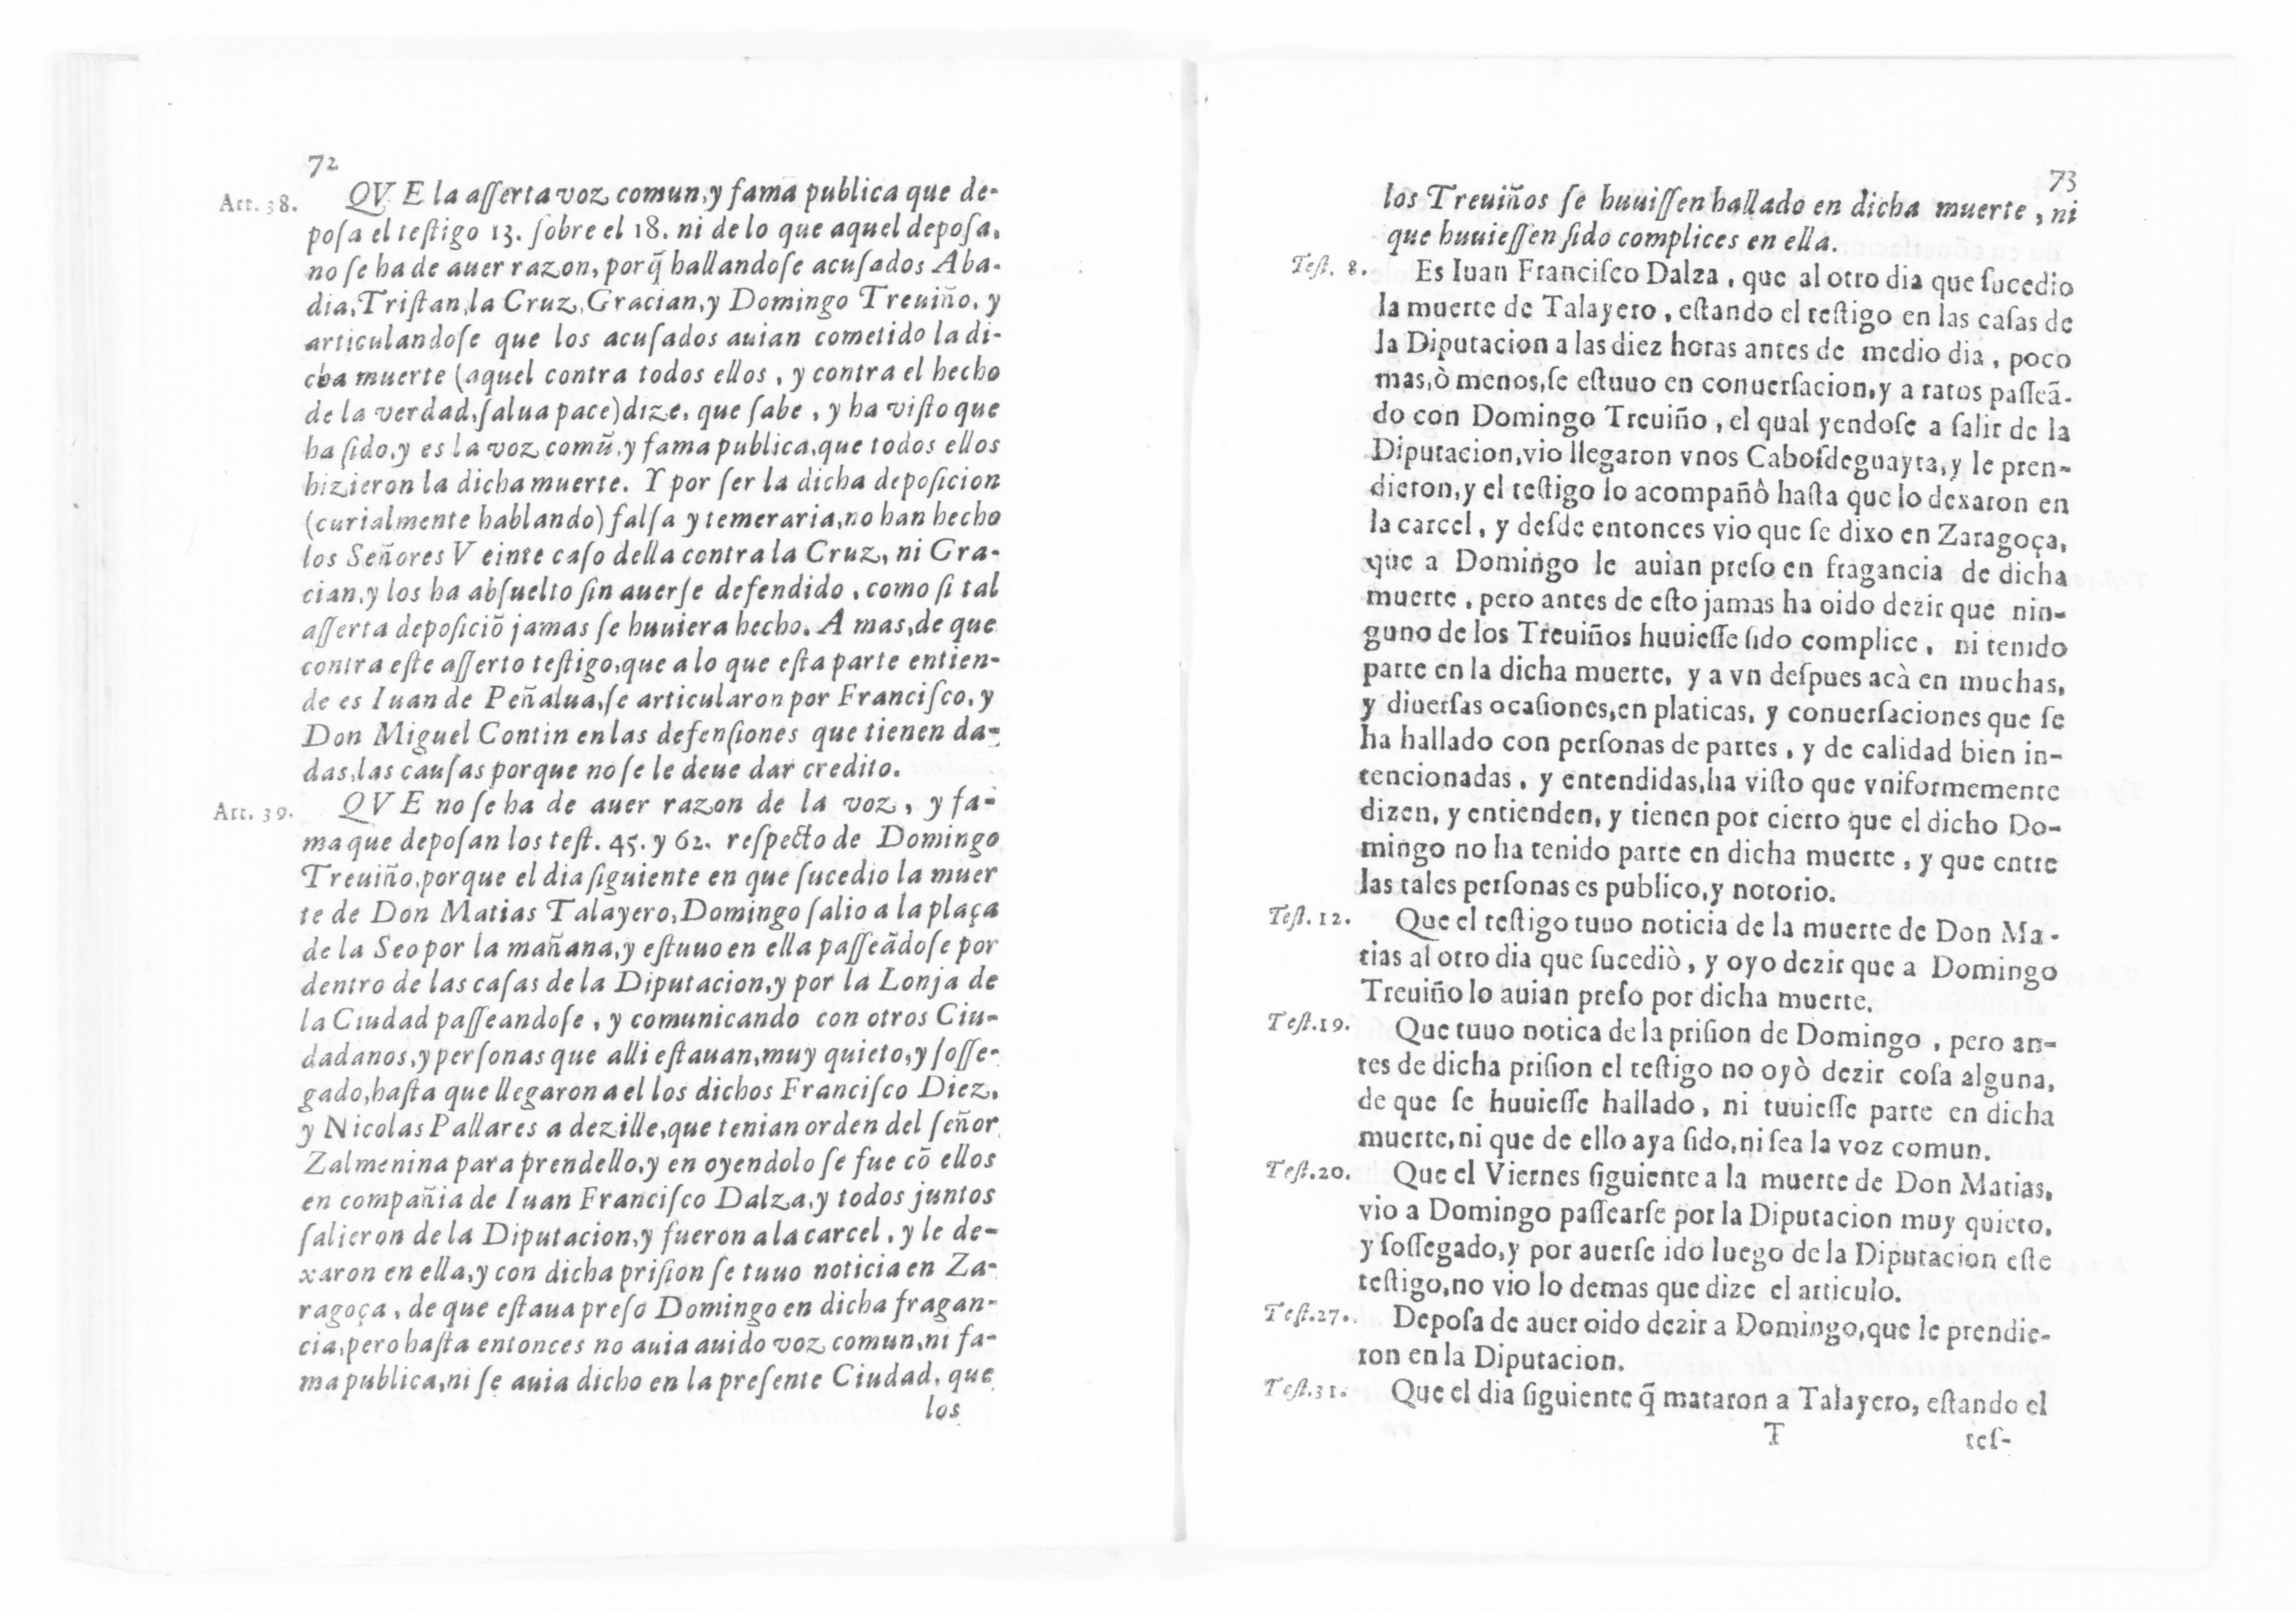 72
Art. 38. QVE la asserta voz comun, y fama publica que de-
posa el testigo 13. sobre el 18. ni de lo que aquel deposa,
no se ha de auer razon, porq̃ hallandose acusados Aba-
dia, Tristan, la Cruz, Gracian, y Domingo Treuiño, y
articulandose que los acusados auian cometido la di-
cha muerte (aquel contra todos ellos, y contra el hecho
de la verdad, salua pace) dize, que sabe, y ha visto que
ha sido, y es la voz comũ, y fama publica, que todos ellos
hizieron la dicha muerte. Y por ser la dicha deposicion
(curialmente hablando) falsa y temeraria, no han hecho
los Señores Veinte caso della contra la Cruz, ni Gra-
cian, y los ha absuelto sin auerse defendido, como si tal
asserta deposiciõ jamas se huuiera hecho. A mas, de que
contra este asserto testigo, que a lo que esta parte entien-
de es Iuan de Peñalua, se articularon por Francisco, y
Don Miguel Contin en las defensiones que tienen da-
das, las causas porque no se le deue dar credito.
Art. 39. QVE no se ha de auer razon de la voz, y fa-
ma que deposan los test. 45. y 62. respecto de Domingo
Treuiño, porque el dia siguiente en que sucedio la muer
te de Don Matias Talayero, Domingo salio a la plaça
de la Seo por la mañana, y estuuo en ella passeãdose por
dentro de las casas de la Diputacion, y por la Lonja de
la Ciudad passeandose, y comunicando con otros Ciu-
dadanos, y personas que alli estauan, muy quieto, y sosse-
gado, hasta que llegaron a el los dichos Francisco Diez,
y Nicolas Pallares a dezille, que tenian orden del señor
Zalmenina para prendello, y en oyendolo se fue cõ ellos
en compañia de Iuan Francisco Dalza, y todos juntos
salieron de la Diputacion, y fueron a la carcel, y le de-
xaron en ella, y con dicha prision se tuuo noticia en Za-
ragoça, de que estaua preso Domingo en dicha fragan-
cia, pero hasta entonces no auia auido voz comun, ni fa-
ma publica, ni se auia dicho en la presente Ciudad, que
los
73
los Treuiños se huuissen hallado en dicha muerte, ni
que huuiessen sido complices en ella.
Test. 8. Es Iuan Francisco Dalza, que al otro dia que sucedio
la muerte de Talayero, estando el testigo en las casas de
la Diputacion a las diez horas antes de medio dia, poco
mas, ò menos, se estuuo en conuersacion, y a ratos passeã-
do con Domingo Treuiño, el qual yendose a salir de la
Diputacion, vio llegaron vnos Cabosdeguayta, y le pren-
dieron, y el testigo lo acompañò hasta que lo dexaron en
la carcel, y desde entonces vio que se dixo en Zaragoça,
que a Domingo le auian preso en fragancia de dicha
muerte, pero antes de esto jamas ha oido dezir que nin-
guno de los Treuiños huuiesse sido complice, ni tenido
parte en la dicha muerte, y a vn despues acà en muchas,
y diuersas ocasiones, en platicas, y conuersaciones que se
ha hallado con personas de partes, y de calidad bien in-
tencionadas, y entendidas, ha visto que vniformemente
dizen, y entienden, y tienen por cierto que el dicho Do-
mingo no ha tenido parte en dicha muerte, y que entre
las tales personas es publico, y notorio.
Test. 12. Que el testigo tuuo noticia de la muerte de Don Ma-
tias al otro dia que sucediò, y oyo dezir que a Domingo
Treuiño lo auian preso por dicha muerte.
Test. 19. Que tuuo notica de la prision de Domingo, pero an-
tes de dicha prision el testigo no oyò dezir cosa alguna,
de que se huuiesse hallado, ni tuuiesse parte en dicha
muerte, ni que de ello aya sido, ni sea la voz comun.
Test. 20. Que el Viernes siguiente a la muerte de Don Matias,
vio a Domingo passearse por la Diputacion muy quieto,
y sossegado, y por auerse ido luego de la Diputacion este
testigo, no vio lo demas que dize el articulo.
Test. 27. Deposa de auer oido dezir a Domingo, que le prendie-
ron en la Diputacion.
Test. 31. Que el dia siguiente q̃ mataron a Talayero, estando el
T tes-